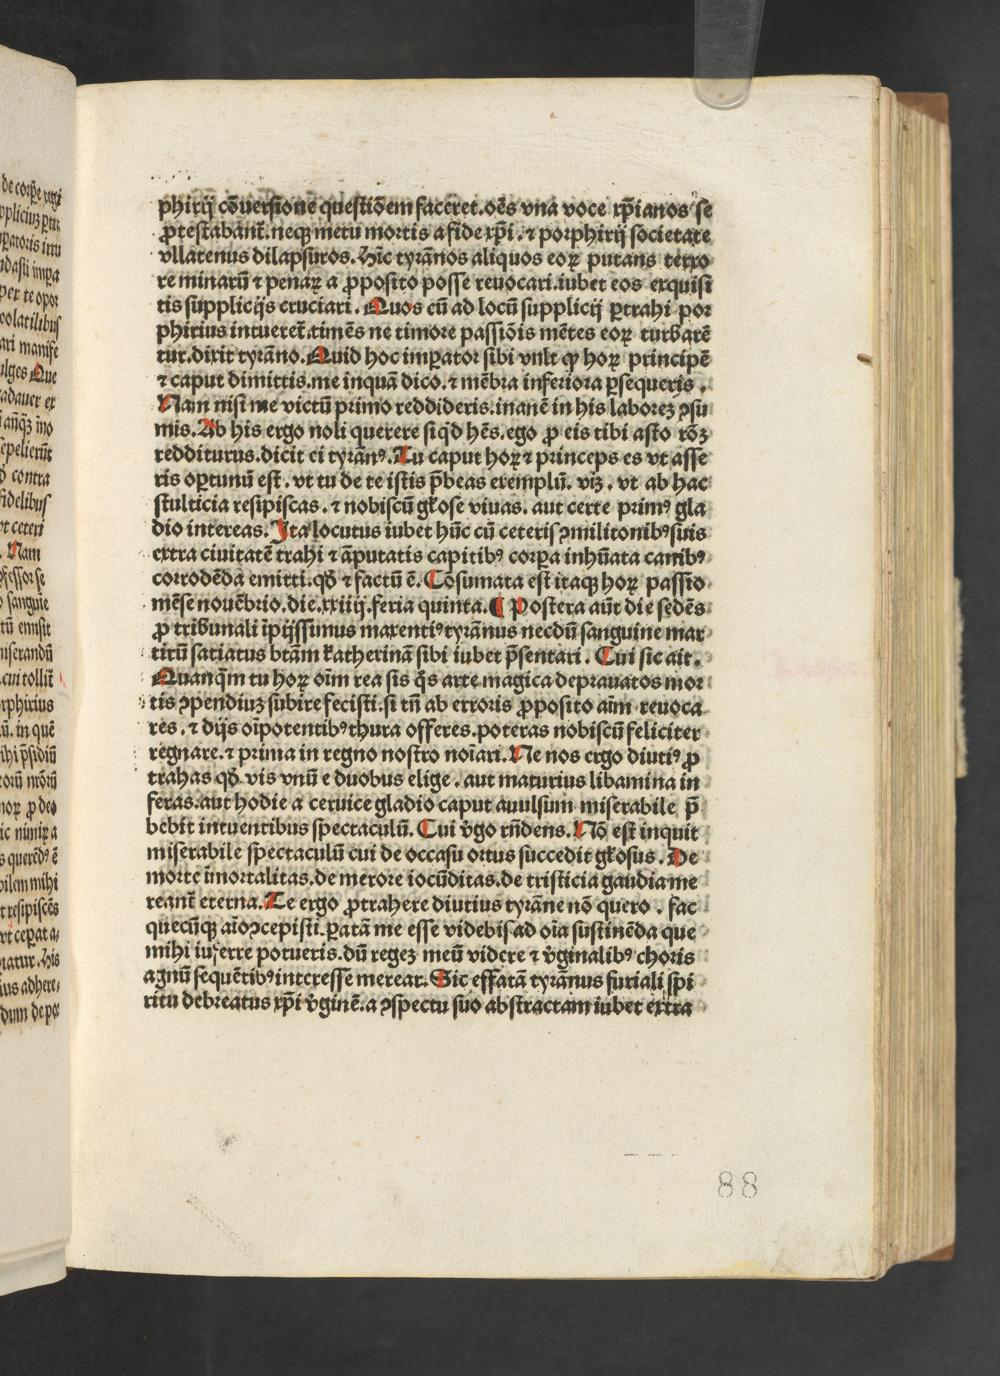 phirij cōuersione questiōem faceret. oēs vna voce xp̄ianos se
ꝓtestabānt̄. neqꝫ metu mortis a fide xp̄i. ⁊ porphirij societate
vllatenus dilapsuros. Hīc tyrānos aliquos eoꝝ putans terro
re minarū ⁊ penaꝝ a ꝓposito posse reuocari. iubet eos exquisi
tis supplicijs cruciari. Quos cū ad locū supplicij ꝑtrahi por
phirius intueret̄. timēs ne timore passiōis mētes eoꝝ turbarē
tur. dixit tyrāno. Quid hoc imꝑator sibi vult ꝙ hoꝝ principē
⁊ caput dimittis. me inquā dico. ⁊ mēbra inferiora ꝑsequeris.
Nam nisi me victū primo reddideris. inanē in his laboreꝫ ꝯsu
mis. Ab his ergo noli querere siqd̄ hēs. ego ꝓ eis tibi asto rōꝫ
redditurus. dicit ei tyrānꝰ. Tu caput hoꝝ ⁊ princeps es vt asse
ris oꝑtunū est. vt tu de te istis p̄beas exemplū. viꝫ. vt ab hac
stulticia resipiscas. ⁊ nobiscū gl̄ose viuas. aut certe primꝰ gla
dio intereas. Ita locutus iubet hūc cū ceteris ꝯmilitonibꝰ suis
extra ciuitatē trahi ⁊ āputatis capitibꝰ corꝑa inhūata canibꝰ
corrodēda emitti. qd̄ ⁊ factū ē. Cōsumata est itaqꝫ hoꝝ passio
mēse nouēbrio. die. xxiiij. feria quinta. ¶ Postera aūt die sedēs
ꝓ tribunali īpijssimus maxentiꝰ tyrānus necdū sanguine mar
tirū satiatus btām katherinā sibi iubet p̄sentari. Cui sic ait.
Quanqm̄ tu hoꝝ oīm rea sis q̄s arte magica deprauatos mor
tis ꝯpendiuꝫ subire fecisti. si tn̄ ab erroris ꝓposito aīm reuoca
res. ⁊ dijs oīpotentibꝰ thura offeres. poteras nobiscū feliciter
regnare. ⁊ prima in regno nostro noīari. Ne nos ergo diutiꝰ ꝓ
trahas qd̄. vis vnū e duobus elige. aut maturius libamina in
feras. aut hodie a ceruice gladio caput auulsum miserabile p̄
bebit intuentibus spectaculū. Cui v̄go rn̄dens. Nō est inquit
miserabile spectaculū cui de occasu ortus succedit gl̄osus. De
morte īmortalitas. de merore iocūditas. de tristicia gaudia me
reant̄ eterna. Te ergo ꝓtrahere diutius tyrāne nō quero. fac
quecūqꝫ aīo ꝯcepisti. ꝑatā me esse videbis ad oīa sustinēda que
mihi inferre potueris. dū regeꝫ meū videre ⁊ v̄ginalibꝰ choris
agnū sequētibꝰ interesse merear. Sic effatā tyrānus furiali spi
ritu debreatus xp̄i v̄ginē. a ꝯspectu suo abstractam iubet extra
88